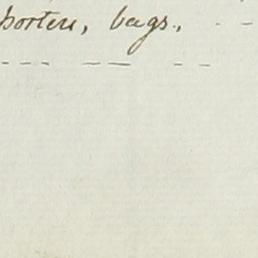 porten, bags., - -
--- -- --